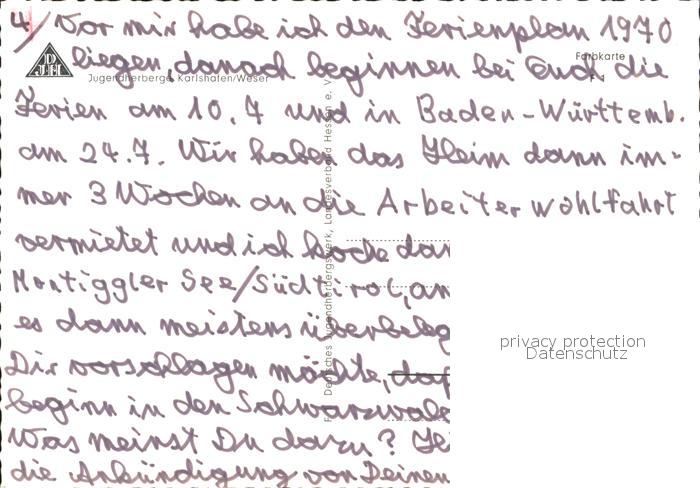 4/ Vor mir habe ich den Ferienplan 1970
liegen, danach beginnen bei Euch die
Ferien am 10.7 und in Baden-Württemb.
am 24.7. Wir haben das Heim dann im-
mer 3 Wochen an die Arbeiterwohlfahrt
vermietet und ich koche dan
Montiggler See/Südtirol, an
es dann meistens überbeleg
Dir vorschlagen möchte, daß
beginn in den Schwarzwald
Was meinst Du dazu? Je
die Ankündigung von Deinen
D
JH
Jugendherberge Karlshafen/Weser
Farbkarte
F 1
Deutsches Jugendherbergswerk, Landesverband Hessen e. V.
privacy protection
Datenschutz